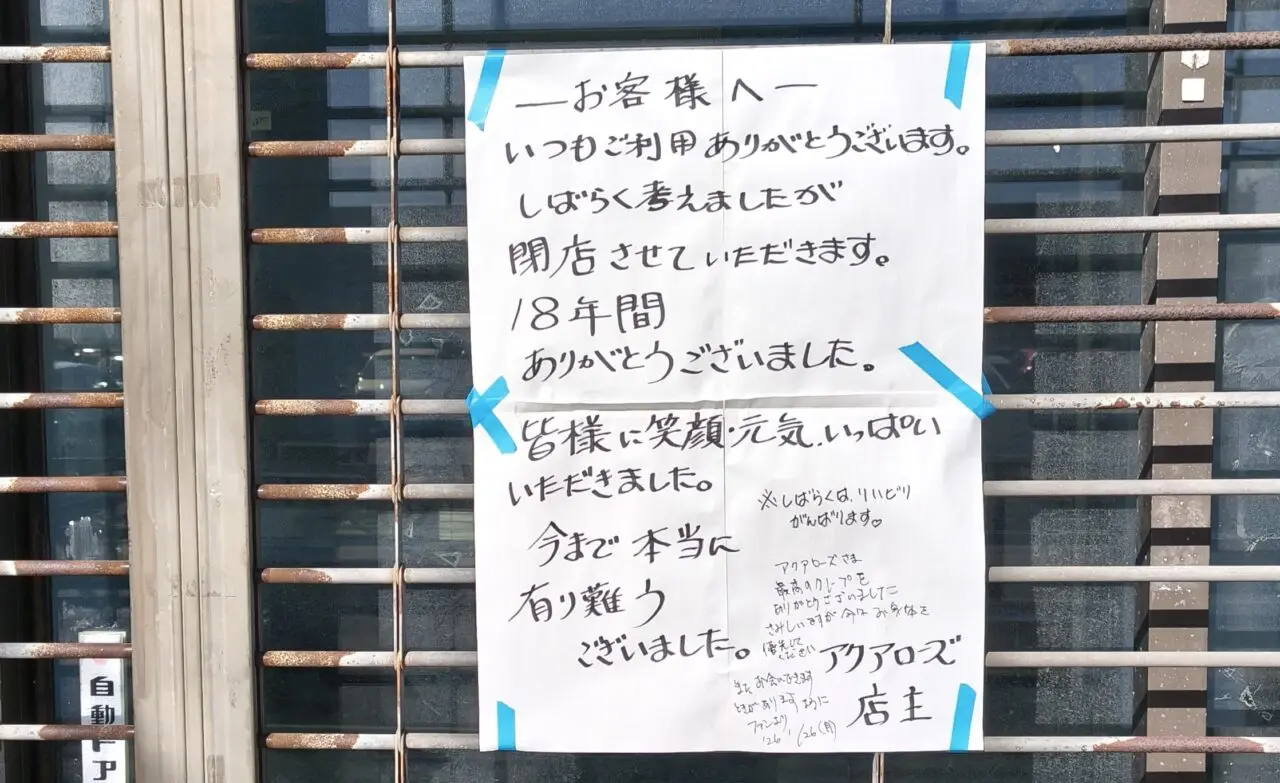 ―お客様へ―
いつもご利用ありがとうございます。
しばらく考えましたが
閉店させていただきます。
18年間
ありがとうございました。
皆様に笑顔・元気、いっぱい
いただきました。
今まで本当に
有り難う
ございました。
※しばらくは、リハビリ
がんばります♡
アクアローズさま
最高のクレープを
ありがとうございました
さみしいですが今は お身体を
優先して
ください
また お会いできます
ときがあります ように
ファンより
'26 1/26(月)
アクアローズ
店主
自動ドア